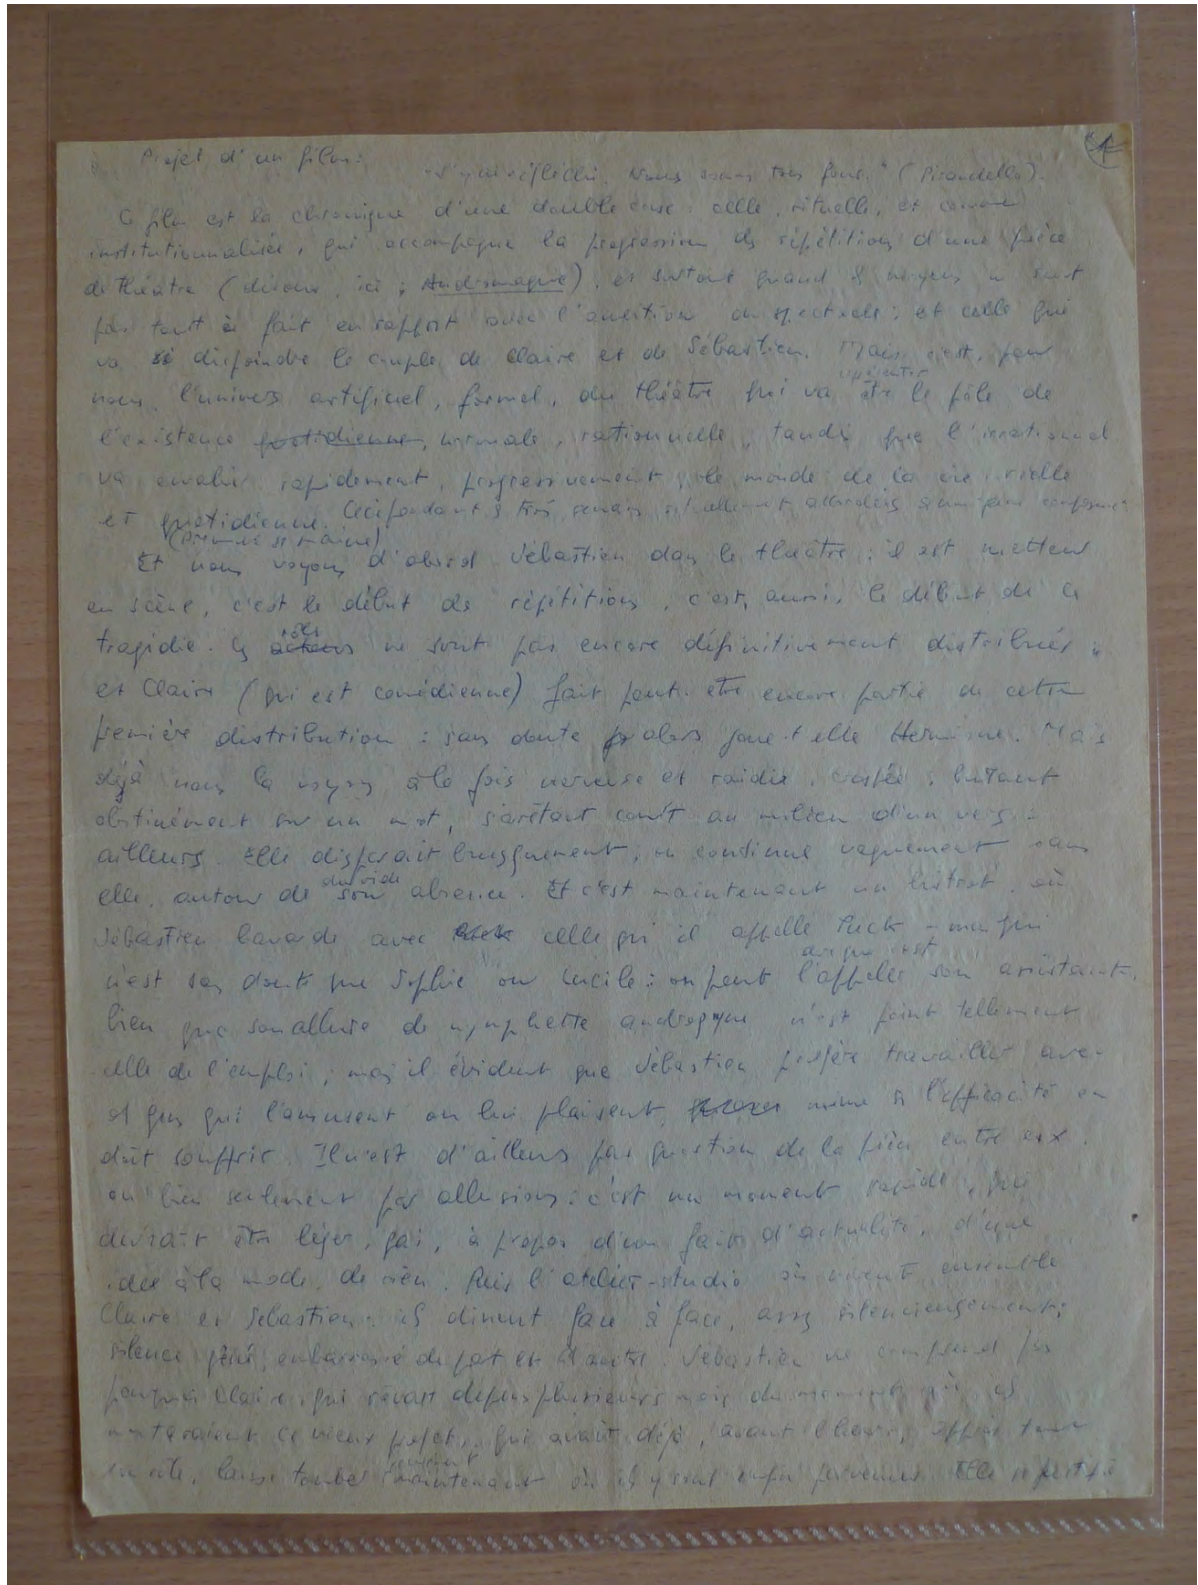 1
Projet d'un film:
réfléchi. Nous sommes tous fous." (Pirandello).
Ce film est la chronique d'une double crise: celle, rituelle, et comme
institutionnalisée, qui accompagne la progression des répétitions d'une pièce
de théâtre (disons, ici: Andromaque), et surtout quand les moyens ne sont
pas tout à fait en rapport avec l'ambition du spectacle; et celle qui
va disjoindre le couple de Claire et de Sébastien. Mais c'est, pour
nous, l'univers artificiel, formel, du théâtre qui va être le pôle de
l'existence quotidienne, normale, rationnelle, tandis que l'irrationnel
va envahir rapidement, progressivement, le monde de la vie réelle
et quotidienne. Ceci
(première semaine)
Et nous voyons d'abord Sébastien dans le théâtre: il est metteur
en scène, c'est le début des répétitions, c'est, aussi, le début de la
tragédie. les acteurs rôles ne sont pas encore définitivement distribués,
et Claire (qui est comédienne) fait peut-être encore partie de cette
première distribution: sans doute alors joue-t-elle Hermione. Mais
déjà nous la voyons à la fois nerveuse et raidie, butant
obstinément sur un mot, s'arrêtant court au milieu d'un vers:
ailleurs. Elle disparait brusquement; on continue vaguement sans
elle, autour de son du vide absence. Et c'est maintenant un bistrot, où
Sébastien bavarde avec celle qu'il appelle Puck - mais qui
n'est sans doute que Sophie ou Lucile: on peut l'appeler son assistante,
bien que son allure de nymphette androgyne n'est point tellement
celle de l'emploi; mais il évident que Sébastien préfère travailler avec
des gens qui l'amusent ou lui plaisent, même si l'efficacité en
doit souffrir. Il n'est d'ailleurs pas question de la pièce entre eux,
ou bien seulement par allusions: c'est un moment rapide, qui
devrait être léger, gai, à propos d'un fait d'actualité, d'une
idée à la mode, de rien. Puis l'atelier-studio où vivent ensemble
Claire et Sébastien: ils dinent face à face, assez silencieusement;
silence gêné, embarrassé de part et d'autre. Sébastien ne comprend pas
pourquoi Claire, qui rêvait depuis plusieurs mois du moment où ils
monteraient ce vieux projet, qui avait déjà, avant l'heure, appris tout
laisse tomber maintenant où ils y sont enfin parvenus. Elle